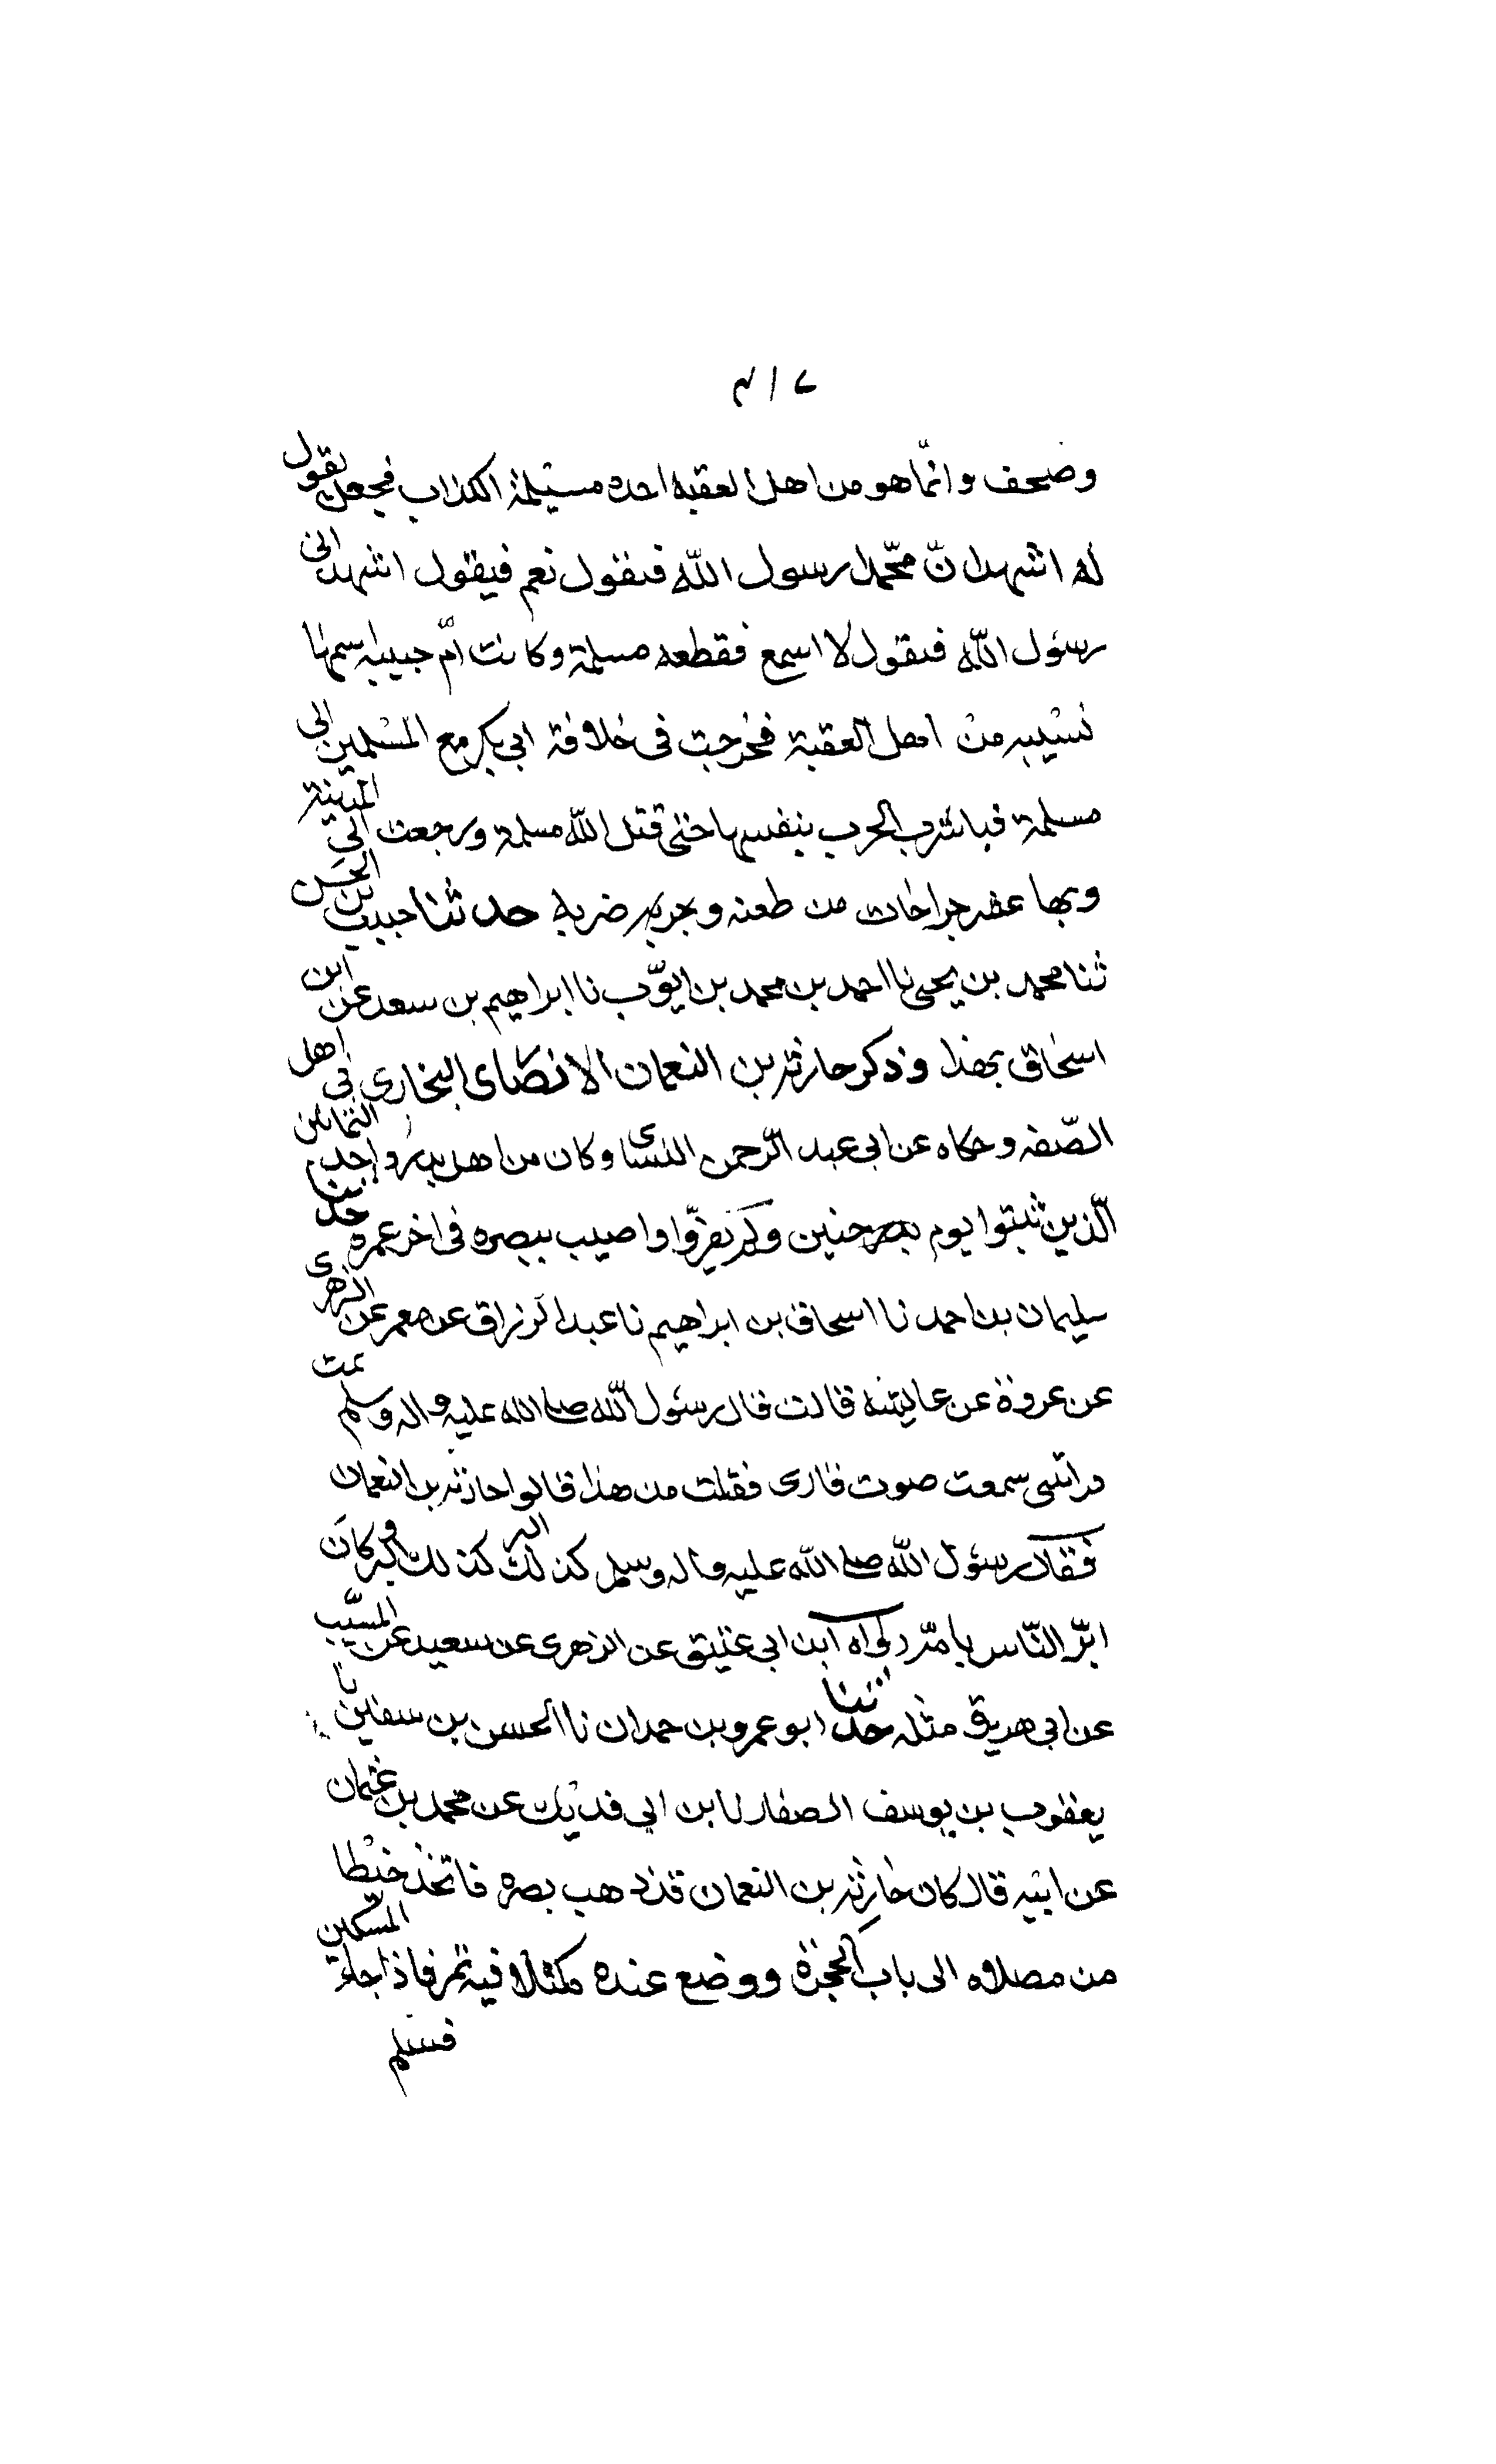 ٣١٧
وصحف وانّما هو من اهل العقبه اخذه مسيلمة الكذاب فجعل يقول
له اشهد انّ محّمدا رسول اللّه فيقول نعم فيقول اشهد انى
رسول اللّه فيقول لا اسمع فقطعه مسلمة وكانت امّ حبيبه اسمها
نسيبه من اهل العقبة فخرجت فى خلافة ابى بكر مع المسلمين الى
مسلمة فباشرت الحرب بنفسها حتى قتل اللّه مسلمة ورجعت الى المدينة
وبها عشر جراحات من طعنه وضربة حدثنا حبيب بن الحسن
ثنا محمد بن يحيى نا احمد بن محمد بن ايوّب نا ابراهيم بن سعد عن ابن
اسحاق بهذا وذكر حارثه بن النعمان الانصارى النجارى فى اهل
الصّفه وحكاه عن ابى عبد الرّحمن النسائى وكان من اهل بدر واحد م الثمانين
الّذين ثبتوا يوم حنين ولم يفرّوا واصيب ببصره فى اخر عمره حدثنا
سليمان بن احمد نا اسحاق بن ابراهيم نا عبد الرزاق عن معمر عن الزهرى
عن عروة عن عايشه قالت قال رسول اللّه صلى الله عليه واله وسلم نمت
فراتنى سمعت صوت قارى فقلت من هذا قالوا حارثه بن النعمان
فقال رسول اللّه صلى اللّه عليه واله وسلم كذلك البر كذلك البر وكان
ابرّ النّاس بامّه رواه ابن ابى عتيق عن الزهرى عن سعيد عن المسيّب
عن ابى هريرة مثله حدثنا ابو عمرو بن حمدان نا الحسن بن سفين نا
يعقوب بن يوسف الصفار نا ابن ابى فديك عن محمد بن عثمان
عن ابيه قال كان حارثه بن النعمان قد ذهب بصره فاتخذ خيطا
من مصلاه الى باب الحجرة ووضع عنده مكتلا فيه تمر فاذا جاءه المسكين
فسلم